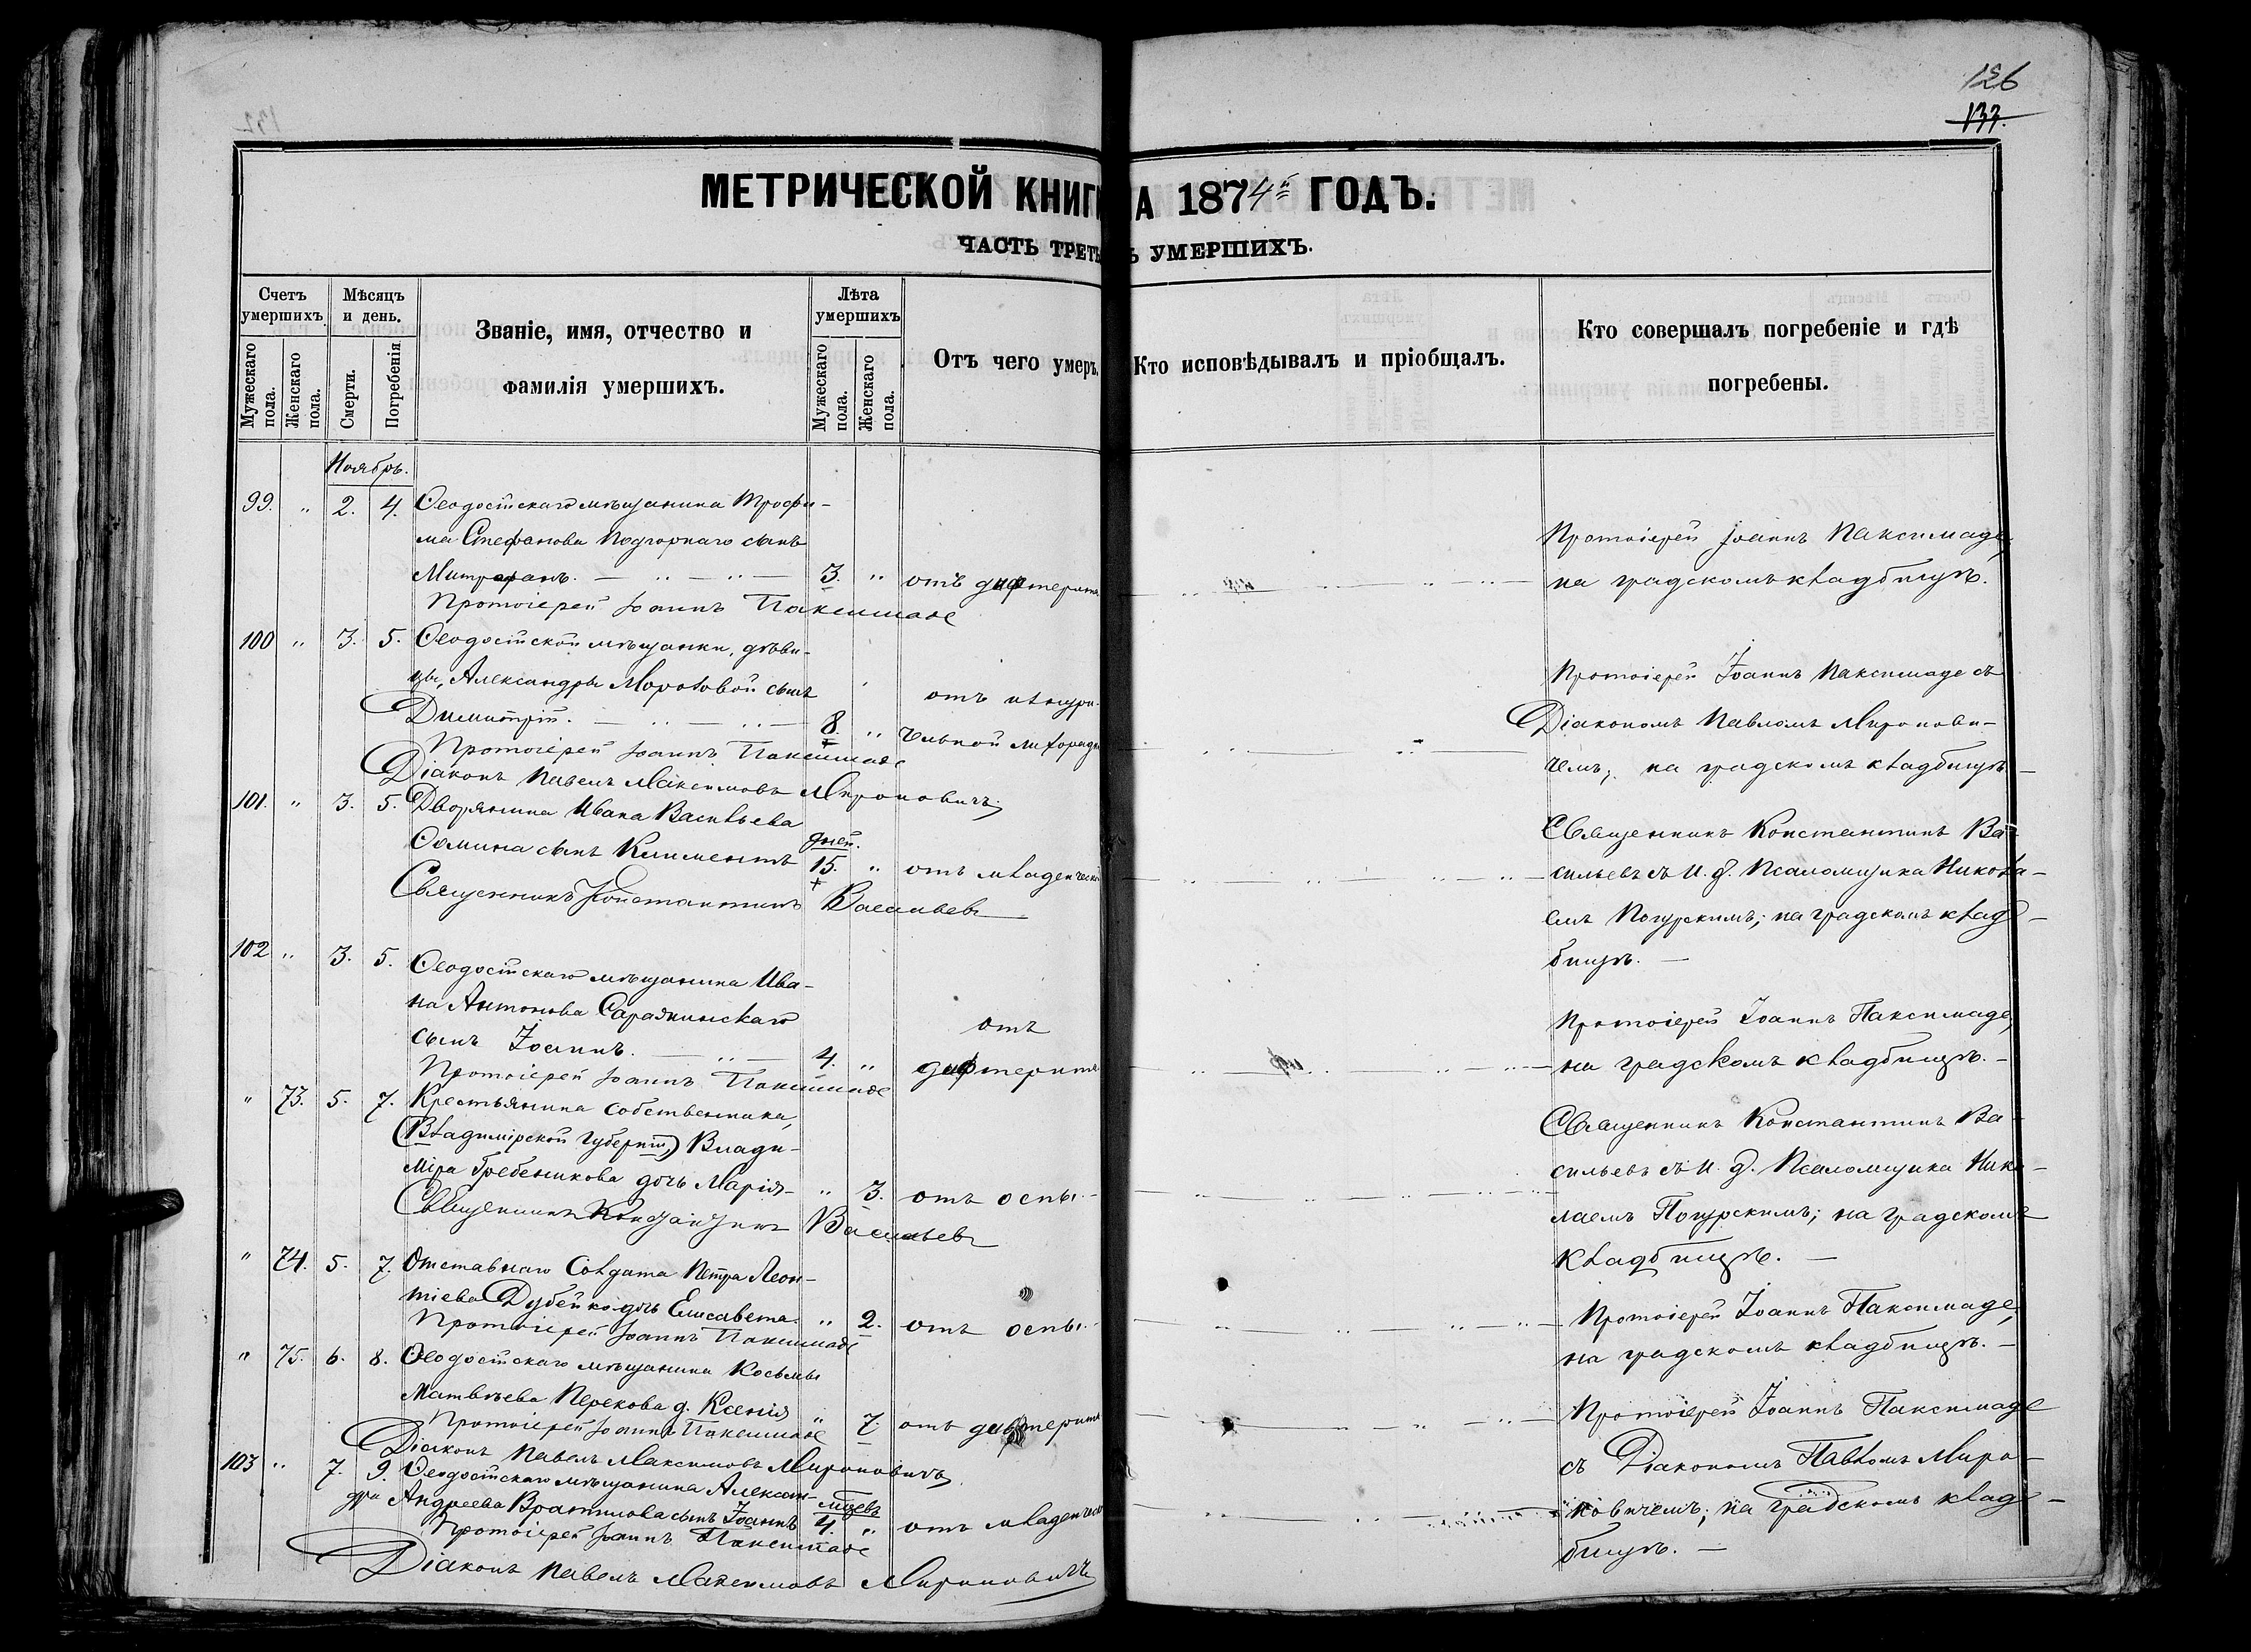 126
133.
МЕТРИЧЕСКОЙ КНИГ А 1874й ГОДЪ.
ЧАСТЬ ТРЕТЬ Ъ УМЕРШИХЪ.
Счетъ умершихъ.
Мужескаго пола.
Женскаго пола.
Мѣсяцъ и день.
Смерти.
Погребенія
Званіе, имя, отчество и
фамилія умершихъ.
Лѣта умершихъ
Мужескаго пола.
Женскаго пола.
Отъ чего умеръ.
Кто исповѣдывалъ и пріобщалъ.
Кто совершалъ погребеніе и гдѣ
погребены.
Ноябрь.
99. " 2. 4. Ѳеодосійскаго мѣщанина Трофи-
ма Стефанова Подгорнаго сынъ
Митрофанъ. 3. " отъ дифтерита
Протоіерей Іоаннъ Паксимаде
Протоіерей Іоаннъ Паксимаде,
на градскомъ кладбищѣ.
100 " 3. 5. Ѳеодосійской мѣщанки, дѣви-
цы, Александры Морозовой сынъ
Димитрій. 8. " отъ изнури-
тельной лихорадки
Протоіерей Іоаннъ Паксимаде
Діаконъ Павелъ Максимовъ Мироновичъ
Протоіерей Іоаннъ Паксимаде съ
Діакономъ Павломъ Миронови-
чемъ; на градскомъ кладбищѣ.
101. " 3. 5. Дворянина Ивана Васильева
Сомина сынъ Климентъ дней. 15. " отъ младенческой
Священникъ Константинъ Васильевъ
Священникъ Константинъ Ва-
сильевъ съ И. д. Псаломщика Никола-
емъ Погурскимъ; на градскомъ клад-
бищѣ. —
102 " 3. 5. Ѳеодосійскаго мѣщанина Ива-
на Антонова Сарачинскаго
сынъ Іоаннъ. 4. " отъ
дифтерита
Протоіерей Іоаннъ Паксимаде
Протоіерей Іоаннъ Паксимаде,
на градскомъ кладбищѣ. —
" 73. 5. 7. Крестьянина собственника,
(Владимірской губерніи,) Влади-
міра Гребеникова дочь Марія " 3. отъ оспы.
Священникъ Константинъ Васильевъ
Священникъ Константинъ Ва-
сильевъ съ И. д. Псаломщика Нико-
лаемъ Погурскимъ; на градскомъ
кладбищѣ. —
" 74. 5. 7. Отставнаго Солдата Петра Леон-
тіева Дубейко дочь Елисавета. " 2. отъ оспы.
Протоіерей Іоаннъ Паксимаде
Протоіерей Іоаннъ Паксимаде,
на градскомъ кладбищѣ. —
" 75. 6. 8. Ѳеодосійскаго мѣщанина Косьмы
Матвѣева Перекова д. Ксенія " 7. отъ дифтерита
Протоіерей Іоаннъ Паксимаде
Діаконъ Павелъ Максимовъ Мироновичъ
Протоіерей Іоаннъ Паксимаде
съ Діакономъ Павломъ Миро-
новичемъ; на градскомъ клад-
бищѣ. —
103 " 7. 9. Ѳеодосійскаго мѣщанина Алексан-
дра Андреева Вратилова сынъ Іоаннъ мѣсяц. 4. " отъ младенческой
Протоіерей Іоаннъ Паксимаде
Діаконъ Павелъ Максимовъ Мироновичъ